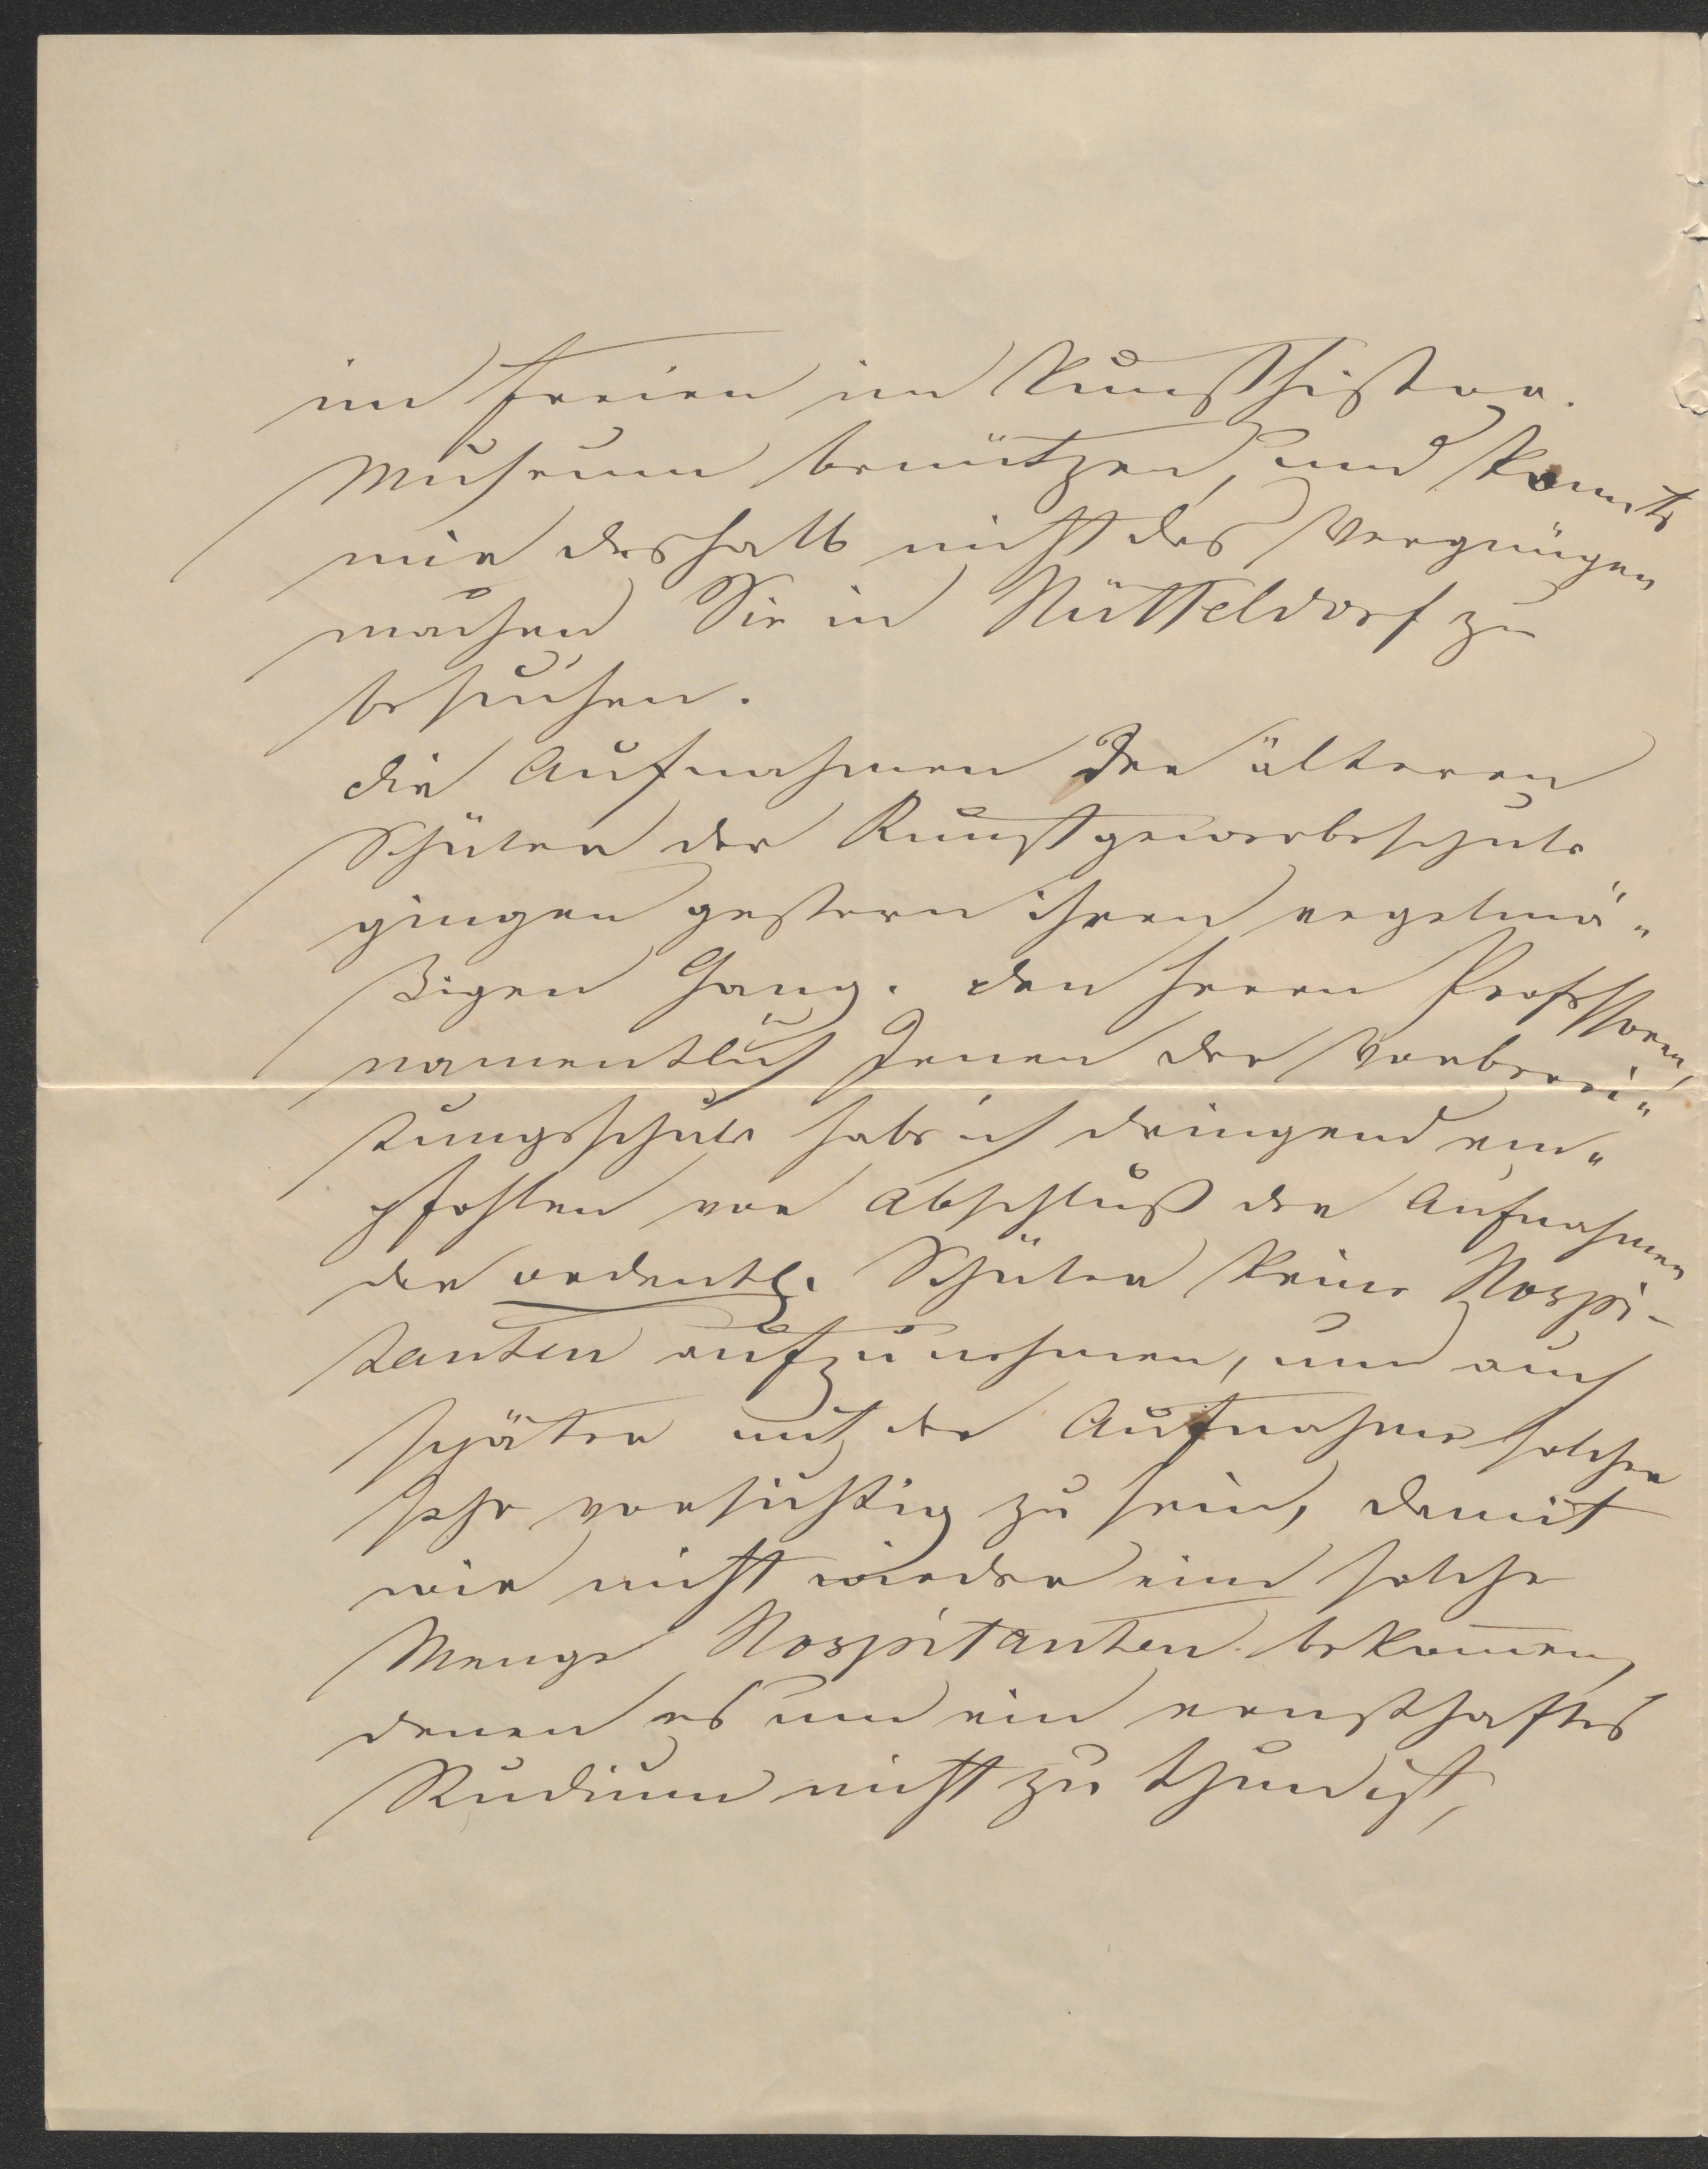 im Freien im Kunsthistor.
Museum benützen, und konnte
mir deshalb nicht das Vergnügen
machen Sie in Hütteldorf zu
besuchen.
Die Aufnahmen der älteren
Schüler der Kunstgewerbeschule
gingen gestern ihren regelmä„
ßigen Gang. Den Herren Professoren,
namentlich Jenen der Vorberei„
tungsschule habe ich dringend em„
pfohlen vor Abschluß der Aufnahmen
der ordentl. Schüler keine Hospi-
tanten aufzunehmen, und auch
später mit der Aufnahme solcher
sehr vorsichtig zu sein, damit
wir nicht wieder eine solche
Menge Hospitanten bekommen,
denen es um ein ernsthaftes
Studium nicht zu thun ist,